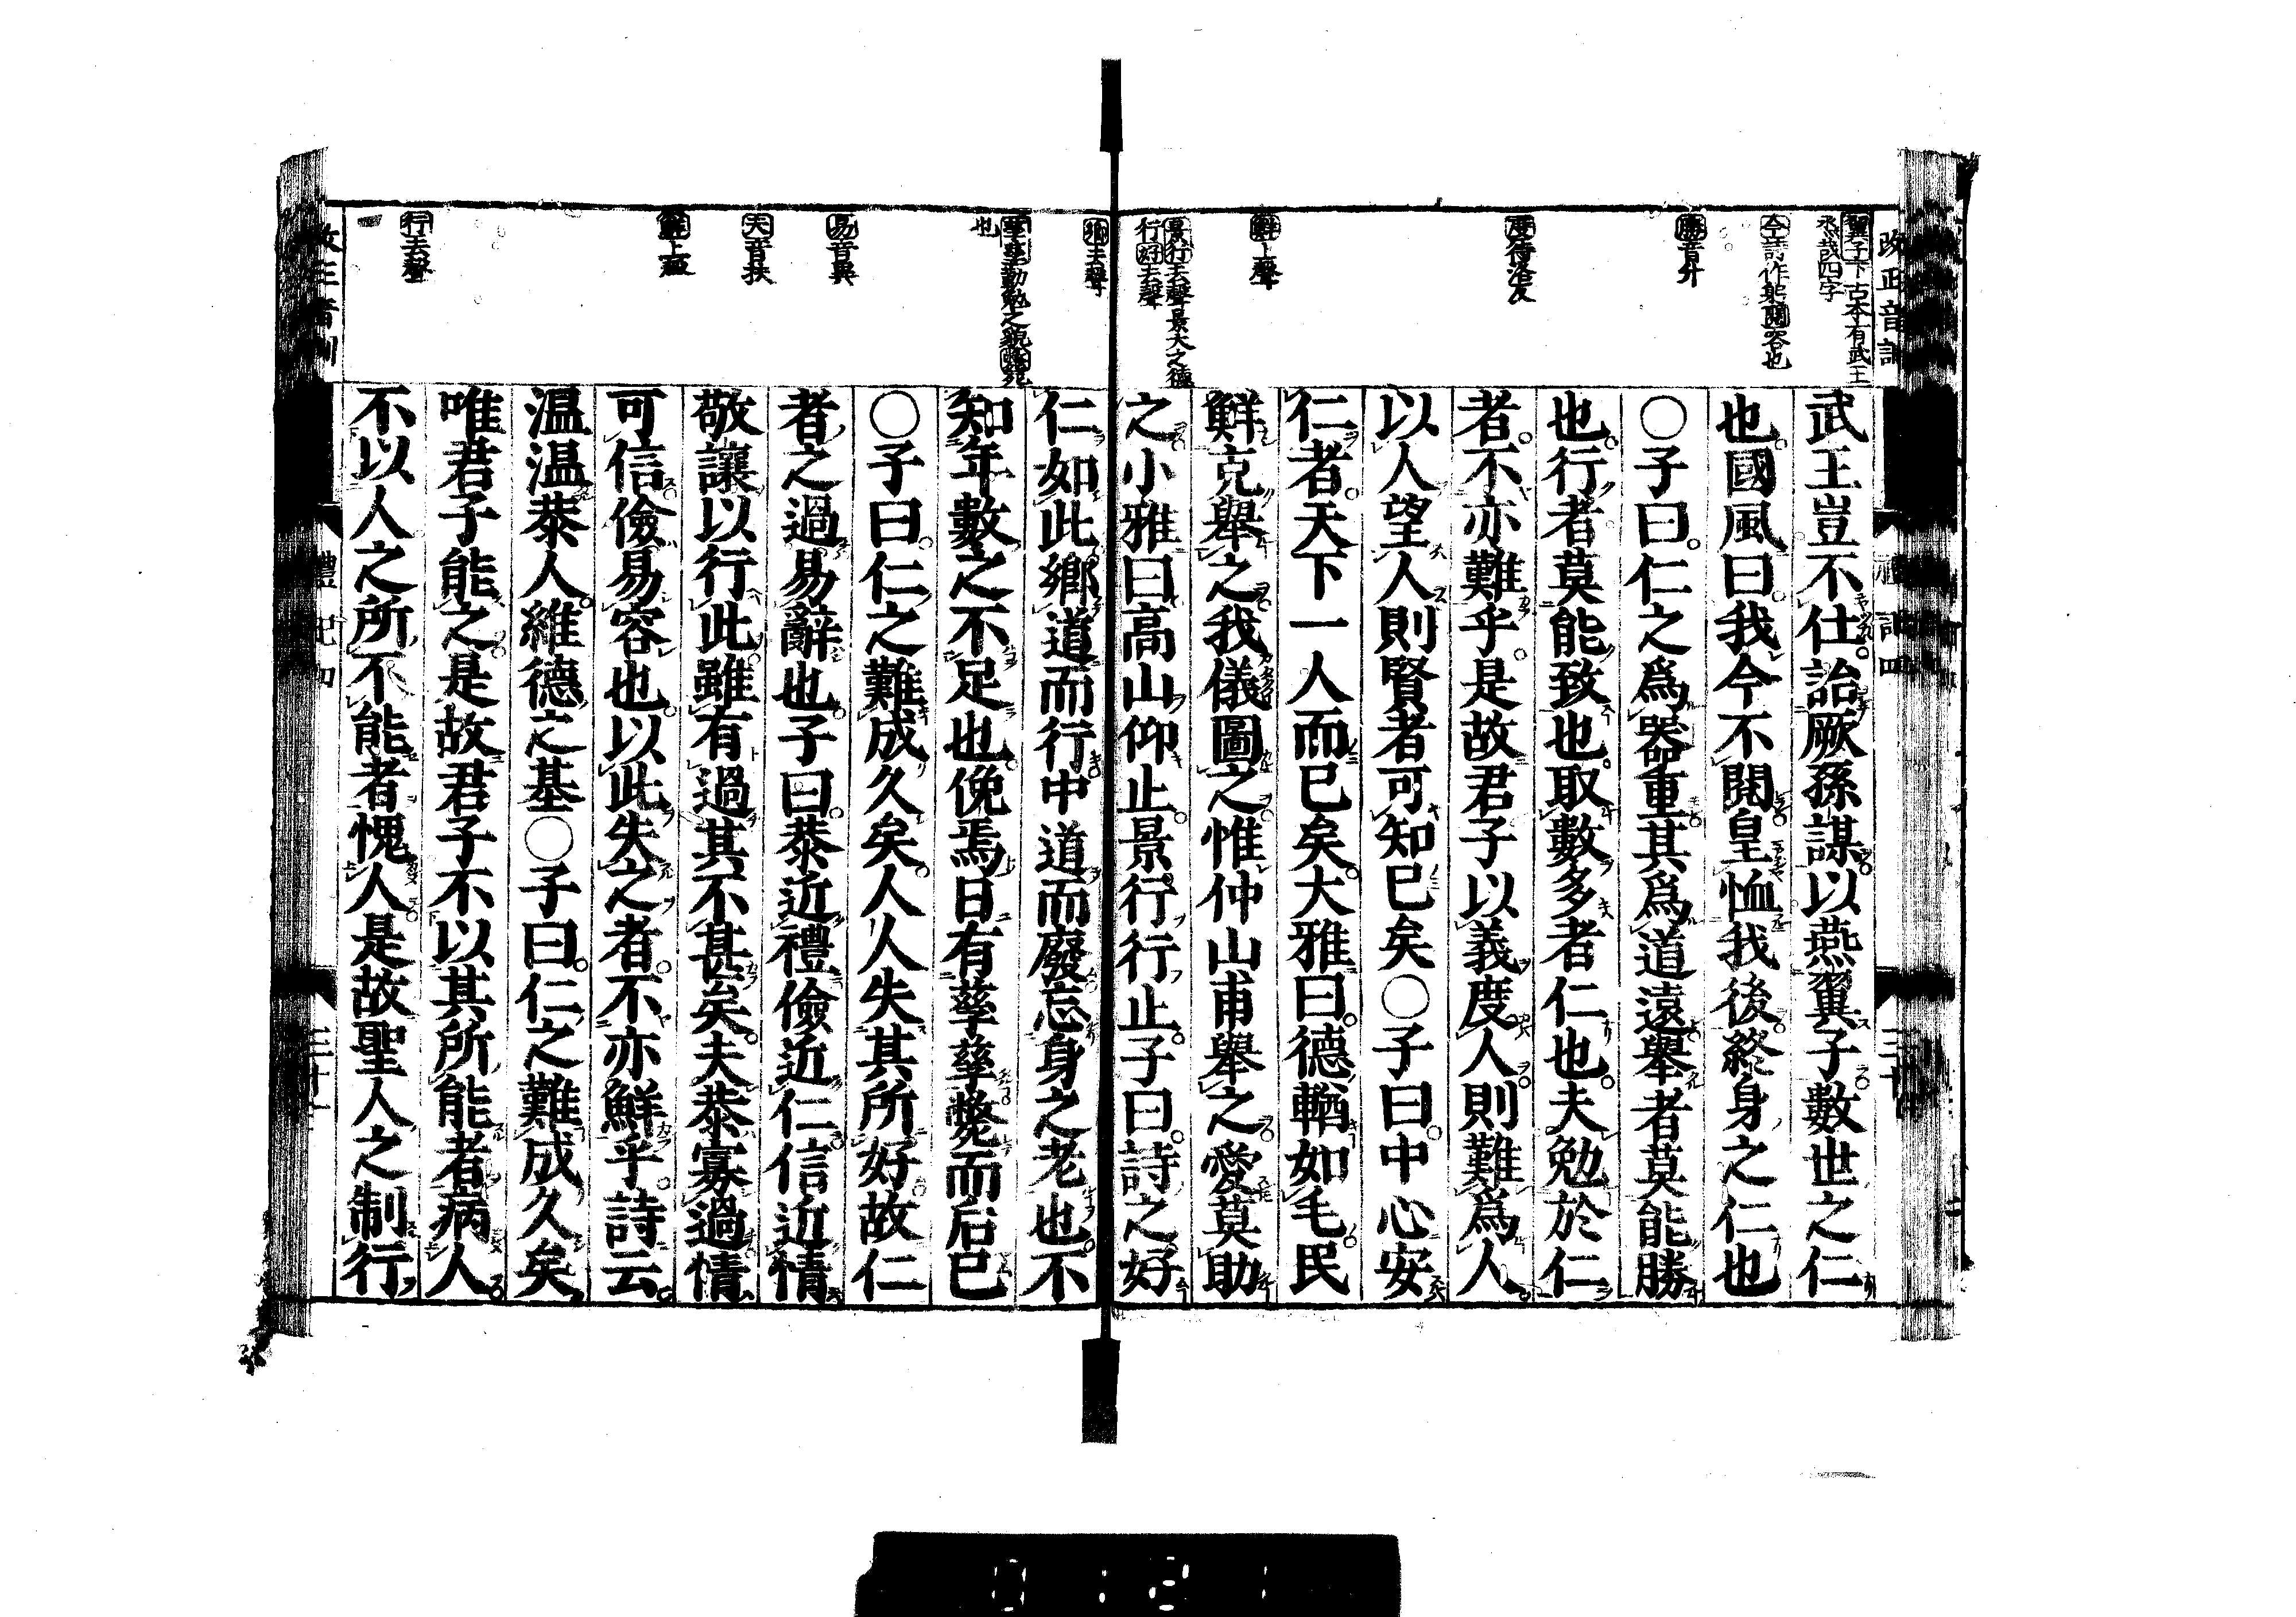 翼子下古本有武王
烝哉四字
今詩作躬閱容也
勝音升
度待洛反
鮮上聲
景行去聲景大之德
行好去聲
武王豈不仕詒厥孫謀以燕翼子數世之仁
也國風曰我今不閱皇恤我後終身之仁也
○子曰仁之爲器重其爲道遠舉者莫能勝
也行者莫能致也取數多者仁也夫勉於仁
者不亦難乎是故君子以義度人則難爲人
以人望人則賢者可知已矣○子曰中心安
仁者天下一人而已矣大雅曰德輶如毛民
鮮克舉之我儀圖之惟仲山甫舉之愛莫助
之小雅曰高山仰止景行行止子曰詩之好
鄉去聲
孳孳勤勉之貌斃死
也
易音異
夫音扶
鮮上聲
行去聲
仁如此鄉道而行中道而廢忘身之老也不
知年數之不足也俛焉日有孳孳斃而后已
○子曰仁之難成久矣人人失其所好故仁
者之過易辭也子曰恭近禮儉近仁信近情
敬讓以行此雖有過其不甚矣夫恭寡過情
可信儉易容也以此失之者不亦鮮乎詩云
溫溫恭人維德之基○子曰仁之難成久矣
唯君子能之是故君子不以其所能者病人
不以人之所不能者愧人是故聖人之制行